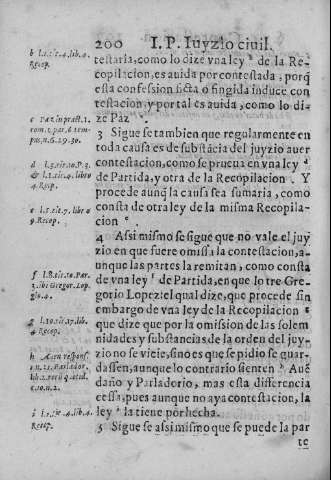 200 I. P. Iuyzio ciuil.
b l.1.tit.4.lib.4.
Recop.
testaria, como lo dize vna ley b de la Re-
copilacion, es auida por contestada, porq̃
esta confession ficta o fingida induce con
testacion, y por tal es auida, como lo di-
ze Paz c
c Paz in pract. 1.
tom. 1. par. 6. tem-
pus, n.6.29.30.
3 Siguese tambien que regularmente en
toda causa es de substãcia del juyzio auer
contestacion, como se prueua en vna ley d
de Partida, y otra de la Recopilacion. Y
procede aunq̃ la causa sea sumaria, como
consta de otra ley de la misma Recopila-
cion e.
d l.3.tit.10.P.3.
& l.1.tit.4.libro
4. Recop.
e l.5.tit.7.libr.
9. Recop.
4 Assi mismo se sigue que no vale el juy
zio en que fuere omissa la contestacion, a-
unque las partes la remitan, como consta
de vna ley f de Partida, en que lo tre Gre-
gorio Lopez: el qual dize, que procede sin
embargo de vna ley de la Recopilacion g
que dize que por la omission de las solem
nidades y substancias de la orden del juy-
zio no se vicie, sino es que se pidio se guar-
dassen, aunque lo contrario sienten h Aue
daño y Parladorio, mas esta diferencia
cessa, pues aunque no aya contestacion, la
ley i la tiene por hecha.
f l.8.tit.10.Par.
3. ibi Gregor. Lop.
glo.4.
g l.10.tit.17.lib.
4. Recop.
i l.1.tit.4.lib.4.
Recop.
5 Siguese assi mismo que se puede la par
te